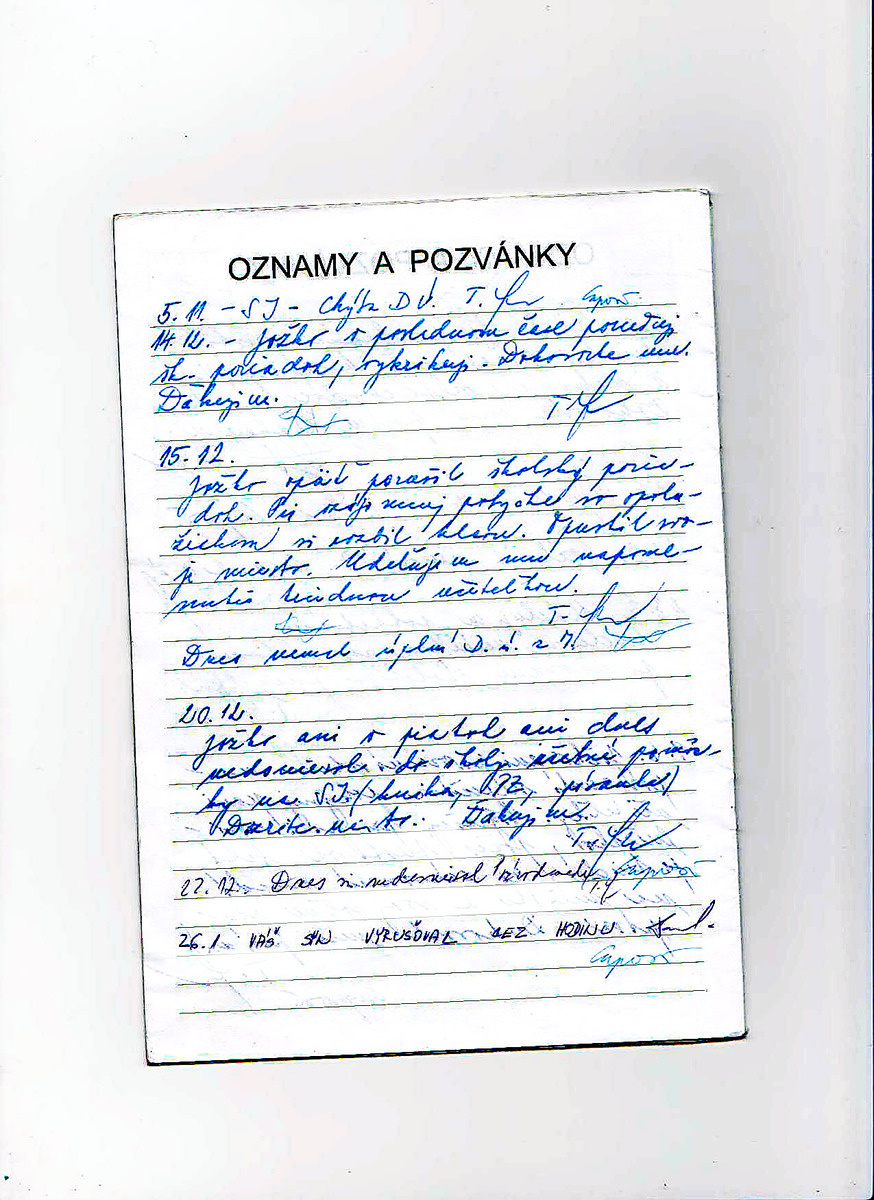 OZNAMY A POZVÁNKY
5.11. - SJ - Chýba D.Ú. T.
14.12. - Jožko v poslednom čase porušuje
šk. poriadok, vykrikuje. Dohovorte mu.
Ďakujem.
15.12.
Jožko opäť porušil školský poria-
dok. Pri vzájomnej potýčke so spolu-
žiakom si rozbil hlavu. Opustil svo-
je miesto. Udeľujem mu napome-
nutie triednou učiteľkou.
Dnes nemal úplnú D.ú. z M.
20.12.
Jožko ani v piatok ani dnes
nedoniesol do školy učebné pomôc-
ky na SJ. (kniha, PZ, písanka)
Dozrite na to. Ďakujem.
22.12. Dnes si nedoniesol
26.1 VÁŠ SYN VYRUŠOVAL CEZ HODINU